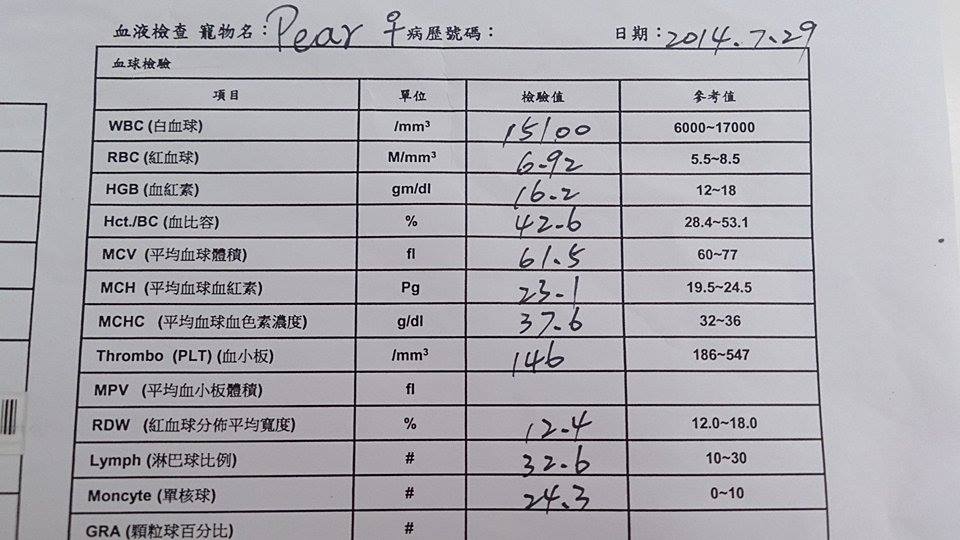 血液檢查 寵物名：Pear ♀ 病歷號碼： 日期：2014.7.29
血球檢驗
項目 單位 檢驗值 參考值
WBC (白血球) /mm³ 15100 6000~17000
RBC (紅血球) M/mm³ 6.92 5.5~8.5
HGB (血紅素) gm/dl 16.2 12~18
Hct./BC (血比容) % 42.6 28.4~53.1
MCV (平均血球體積) fl 61.5 60~77
MCH (平均血球血紅素) Pg 23.1 19.5~24.5
MCHC (平均血球血色素濃度) g/dl 37.6 32~36
Thrombo (PLT) (血小板) /mm³ 146 186~547
MPV (平均血小板體積) fl
RDW (紅血球分佈平均寬度) % 12.4 12.0~18.0
Lymph (淋巴球比例) # 32.6 10~30
Moncyte (單核球) # 24.3 0~10
GRA (顆粒球百分比) #